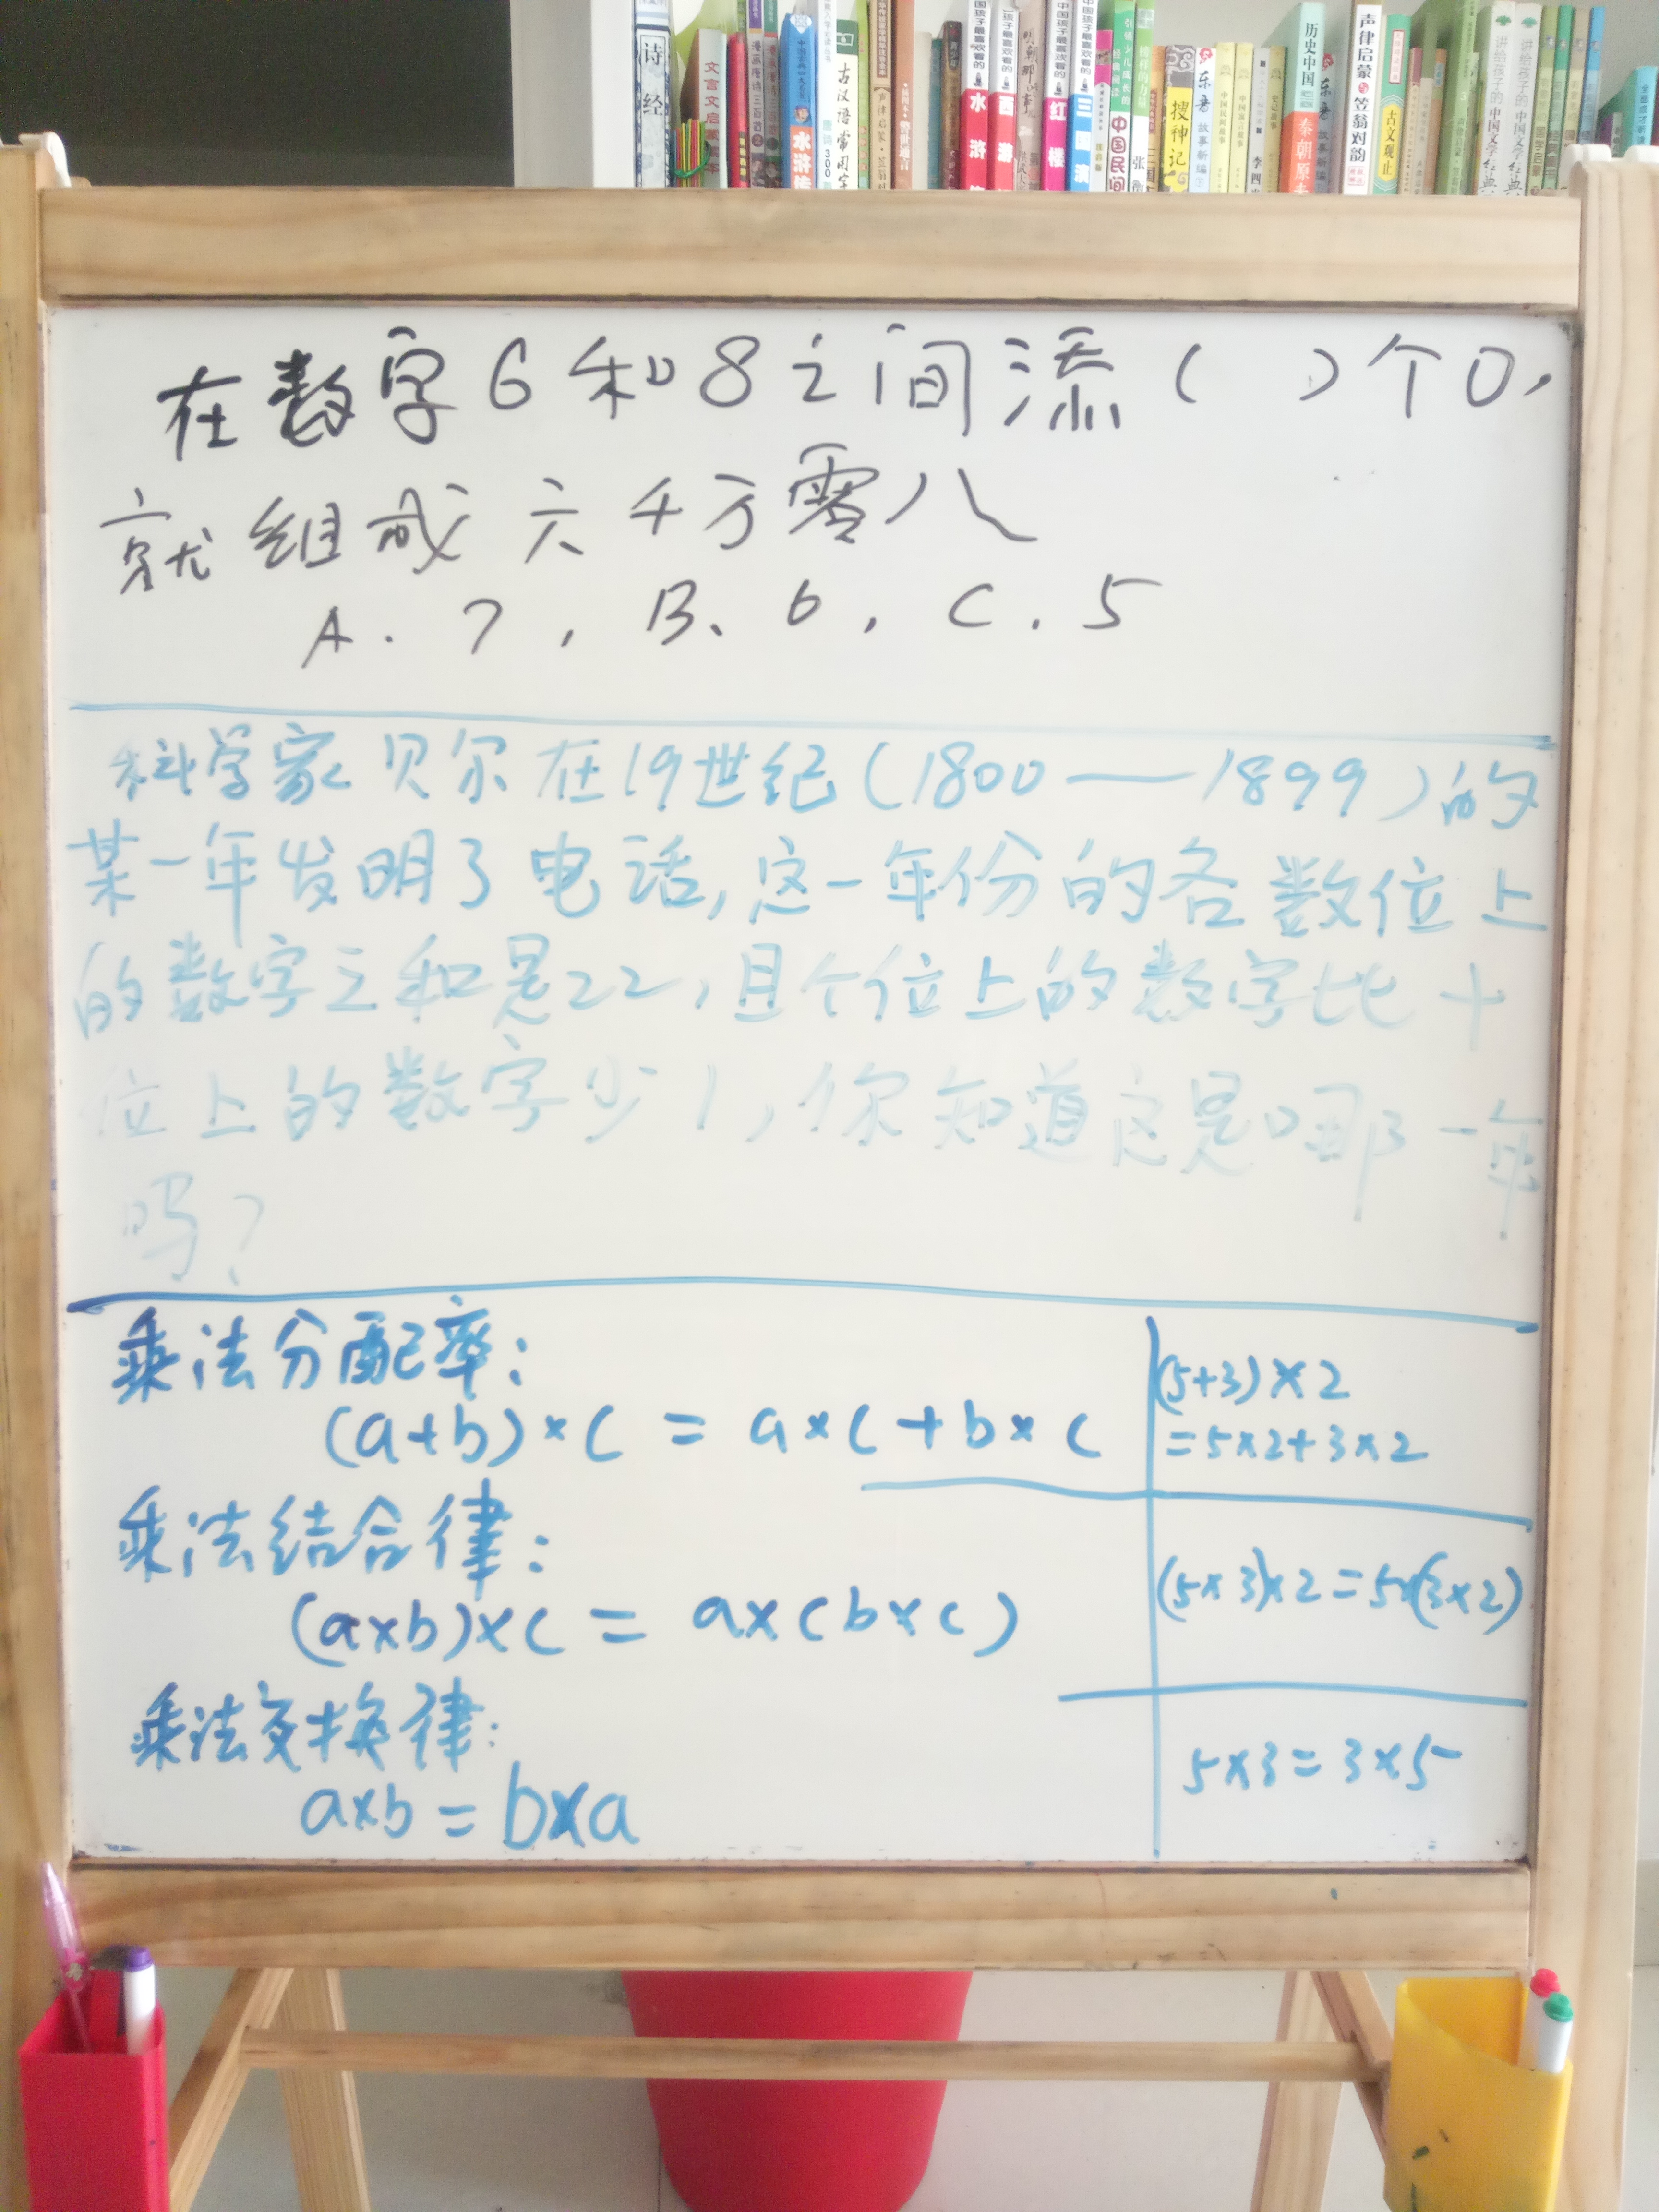 诗经
文言文启蒙
水浒传
古汉语常用字
水浒
西游
红楼
三国演
中国民间
搜神记
历史中国
秦朝原来
声律启蒙与笠翁对韵
古文观止
在数字6和8之间添( )个0,
就组成六千万零八
A.7,B、6,C.5
科学家贝尔在19世纪(1800——1899)的
某一年发明了电话,这一年份的各数位上
的数字之和是22,且个位上的数字比十
位上的数字少1,你知道这是哪一年
吗?
乘法分配率:
(a+b)×c=a×c+b×c
(5+3)×2
=5×2+3×2
乘法结合律:
(a×b)×c=a×(b×c)
(5×3)×2=5×(3×2)
乘法交换律:
a×b=b×a
5×3=3×5